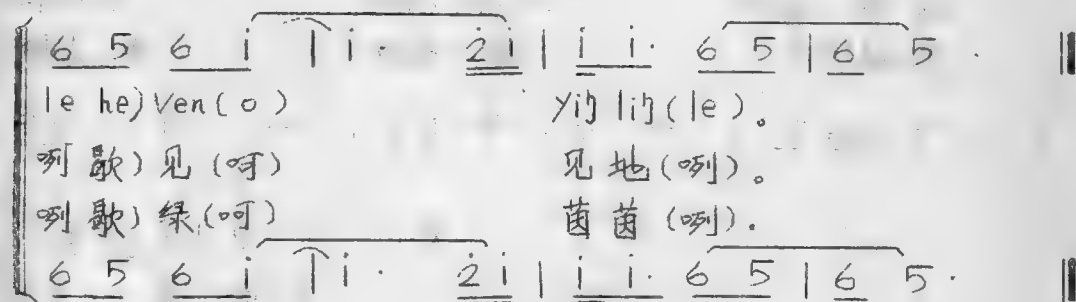 6 5 6 i | i · 2 i | i i · 6 5 | 6 5 ·
le he) ven ( o ) yiŋ liŋ ( le )。
咧 歌 ) 见 ( 呵 ) 见 地 ( 咧 )。
咧 歌 ) 绿 ( 呵 ) 茵 茵 ( 咧 ).
6 5 6 i | i · 2 i | i i · 6 5 | 6 5 ·